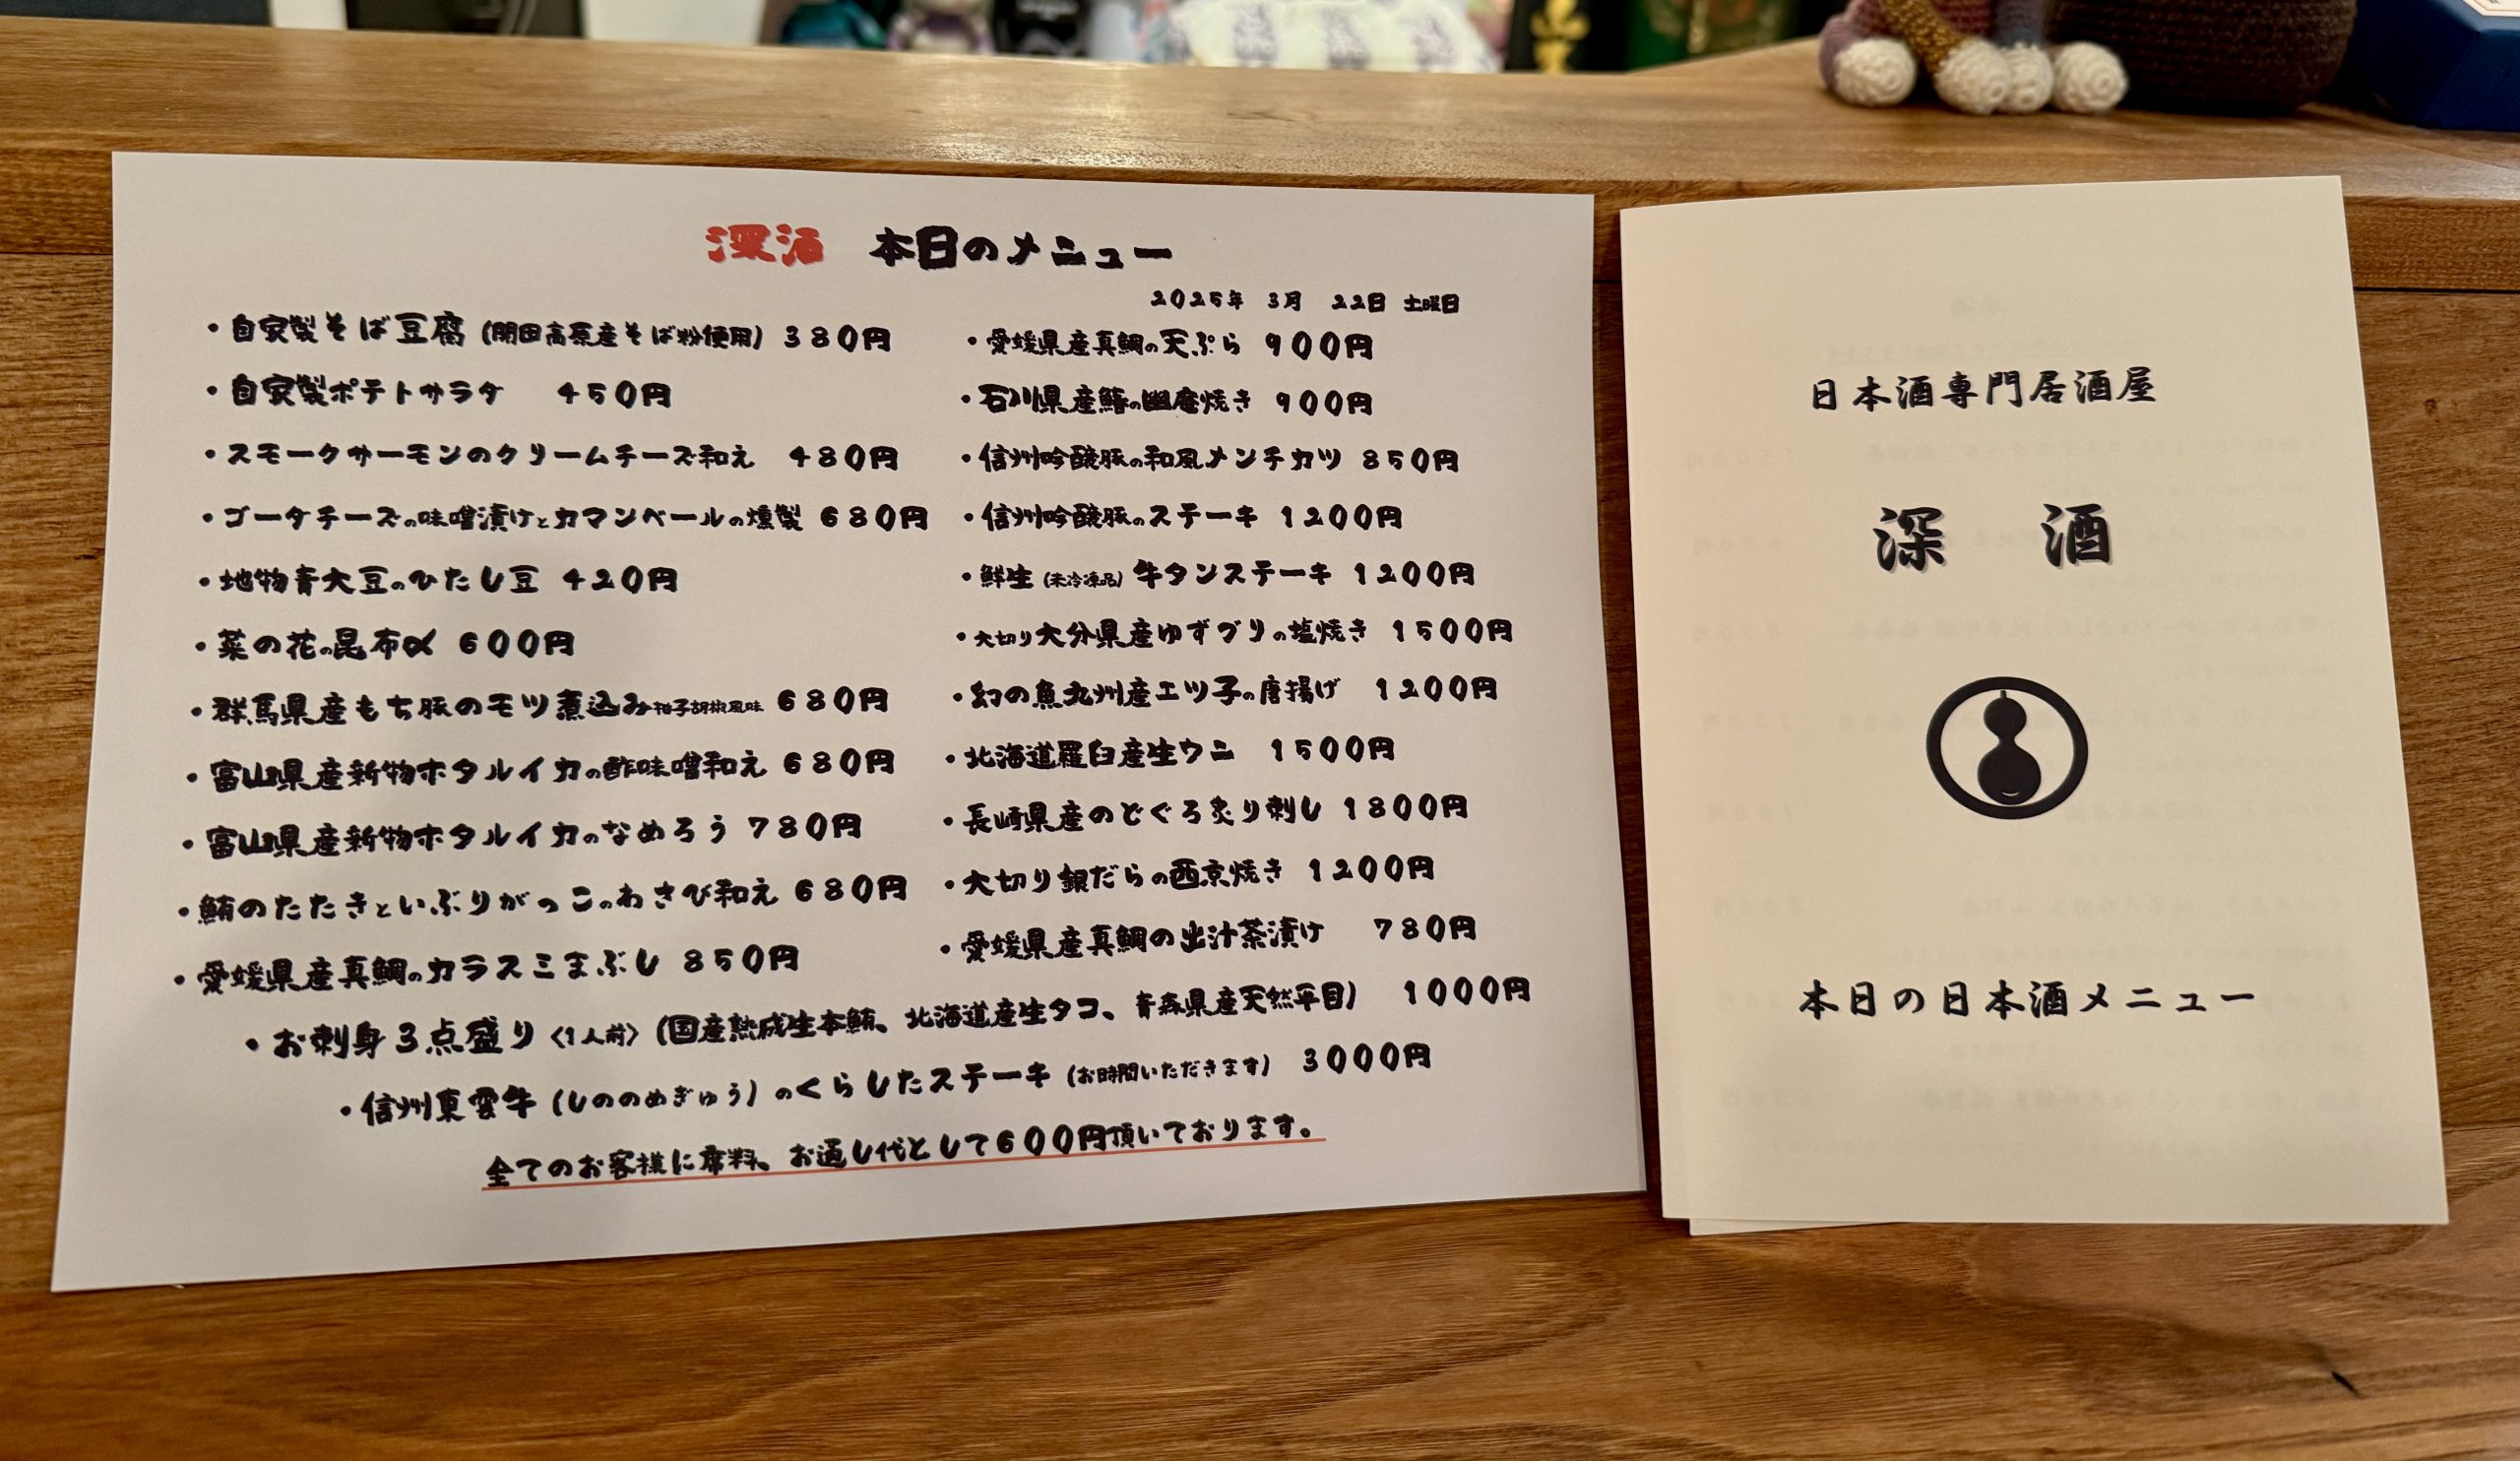 深酒 本日のメニュー
2025年 3月 22日 土曜日
・自家製そば豆腐(開田高原産そば粉使用) 380円
・自家製ポテトサラダ 450円
・スモークサーモンのクリームチーズ和え 480円
・ゴーダチーズの味噌漬けとカマンベールの燻製 680円
・地物青大豆のひたし豆 420円
・菜の花の昆布〆 600円
・群馬県産もち豚のモツ煮込み柚子胡椒風味 680円
・富山県産新物ホタルイカの酢味噌和え 680円
・富山県産新物ホタルイカのなめろう 780円
・鮪のたたきといぶりがっこのわさび和え 680円
・愛媛県産真鯛のカラスミまぶし 850円
・愛媛県産真鯛の天ぷら 900円
・石川県産鰆の幽庵焼き 900円
・信州吟醸豚の和風メンチカツ 850円
・信州吟醸豚のステーキ 1200円
・鮮生(未冷凍品)牛タンステーキ 1200円
・大切り大分県産ゆずブリの塩焼き 1500円
・幻の魚九州産エツ子の唐揚げ 1200円
・北海道羅臼産生ウニ 1500円
・長崎県産のどぐろ炙り刺し 1800円
・大切り銀だらの西京焼き 1200円
・愛媛県産真鯛の出汁茶漬け 780円
・お刺身3点盛り〈1人前〉(国産熟成生本鮪、北海道産生タコ、青森県産天然平目) 1000円
・信州東雲牛(しののめぎゅう)のくらしたステーキ(お時間いただきます) 3000円
全てのお客様に席料、お通し代として600円頂いております。
日本酒専門居酒屋
深 酒
本日の日本酒メニュー